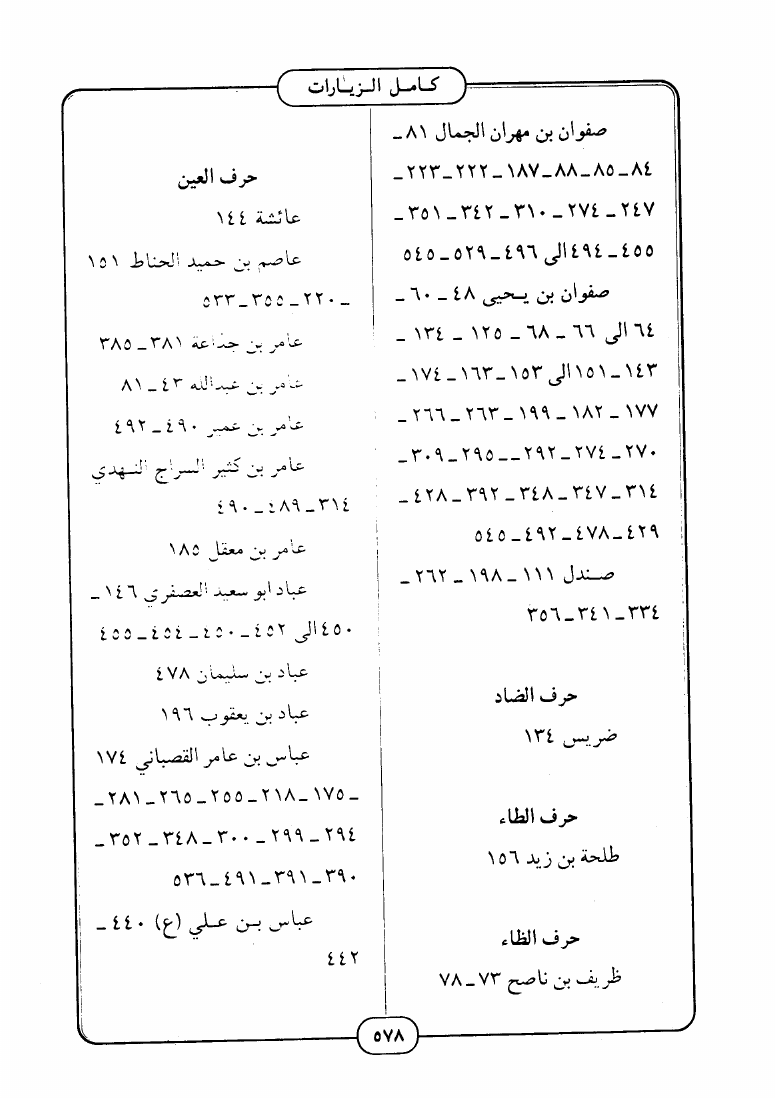 كامل الزيارات
صفوان بن مهران الجمال ٨١ـ
٨٤ـ٨٥ـ٨٨ـ١٨٧ـ٢٢٢ـ٢٢٣ـ
٢٤٧ـ٢٧٤ـ٣١٠ـ٣٤٢ـ٣٥١ـ
٤٥٥ـ٤٩٤الى ٤٩٦ـ٥٢٩ـ٥٤٥
صفوان بن يحيى ٤٨ـ٦٠ـ
٦٤ الى ٦٦ـ٦٨ـ١٢٥ـ١٣٤ـ
١٤٣ـ١٥١الى ١٥٣ـ١٦٣ـ١٧٤ـ
١٧٧ـ١٨٢ـ١٩٩ـ٢٦٣ـ٢٦٦ـ
٢٧٠ـ٢٧٤ـ٢٩٢ــ٢٩٥ـ٣٠٩ـ
٣١٤ـ٣٤٧ـ٣٤٨ـ٣٩٢ـ٤٢٨ـ
٤٢٩ـ٤٧٨ـ٤٩٢ـ٥٤٥
صندل ١١١ـ١٩٨ـ٢٦٢ـ
٣٣٤ـ٣٤١ـ٣٥٦
حرف الضاد
ضريس ١٣٤
حرف الطاء
طلحة بن زيد ١٥٦
حرف الظاء
ظريف بن ناصح ٧٣ـ٧٨
حرف العين
عائشة ١٤٤
عاصم بن حميد الحناط ١٥١
ـ٢٢٠ـ٣٥٥ـ٥٣٣
عامر بن جذاعة ٣٨١ـ٣٨٥
عامر بن عبدالله ٤٣ـ٨١
عامر بن عمير ٤٩٠ـ٤٩٢
عامر بن كثير السراج النهدي
٣١٤ـ٤٨٩ـ٤٩٠
عامر بن معقل ١٨٥
عباد ابو سعيد العصفري ١٤٦ـ
٤٥٠الى ٤٥٢ـ٤٥٠ـ٤٥٤ـ٤٥٥
عباد بن سليمان ٤٧٨
عباد بن يعقوب ١٩٦
عباس بن عامر القصباني ١٧٤
ـ١٧٥ـ٢١٨ـ٢٥٥ـ٢٦٥ـ٢٨١ـ
٢٩٤ـ٢٩٩ـ٣٠٠ـ٣٤٨ـ٣٥٢ـ
٣٩٠ـ٣٩١ـ٤٩١ـ٥٣٦
عباس بن علي (ع) ٤٤٠ـ
٤٤٢
٥٧٨